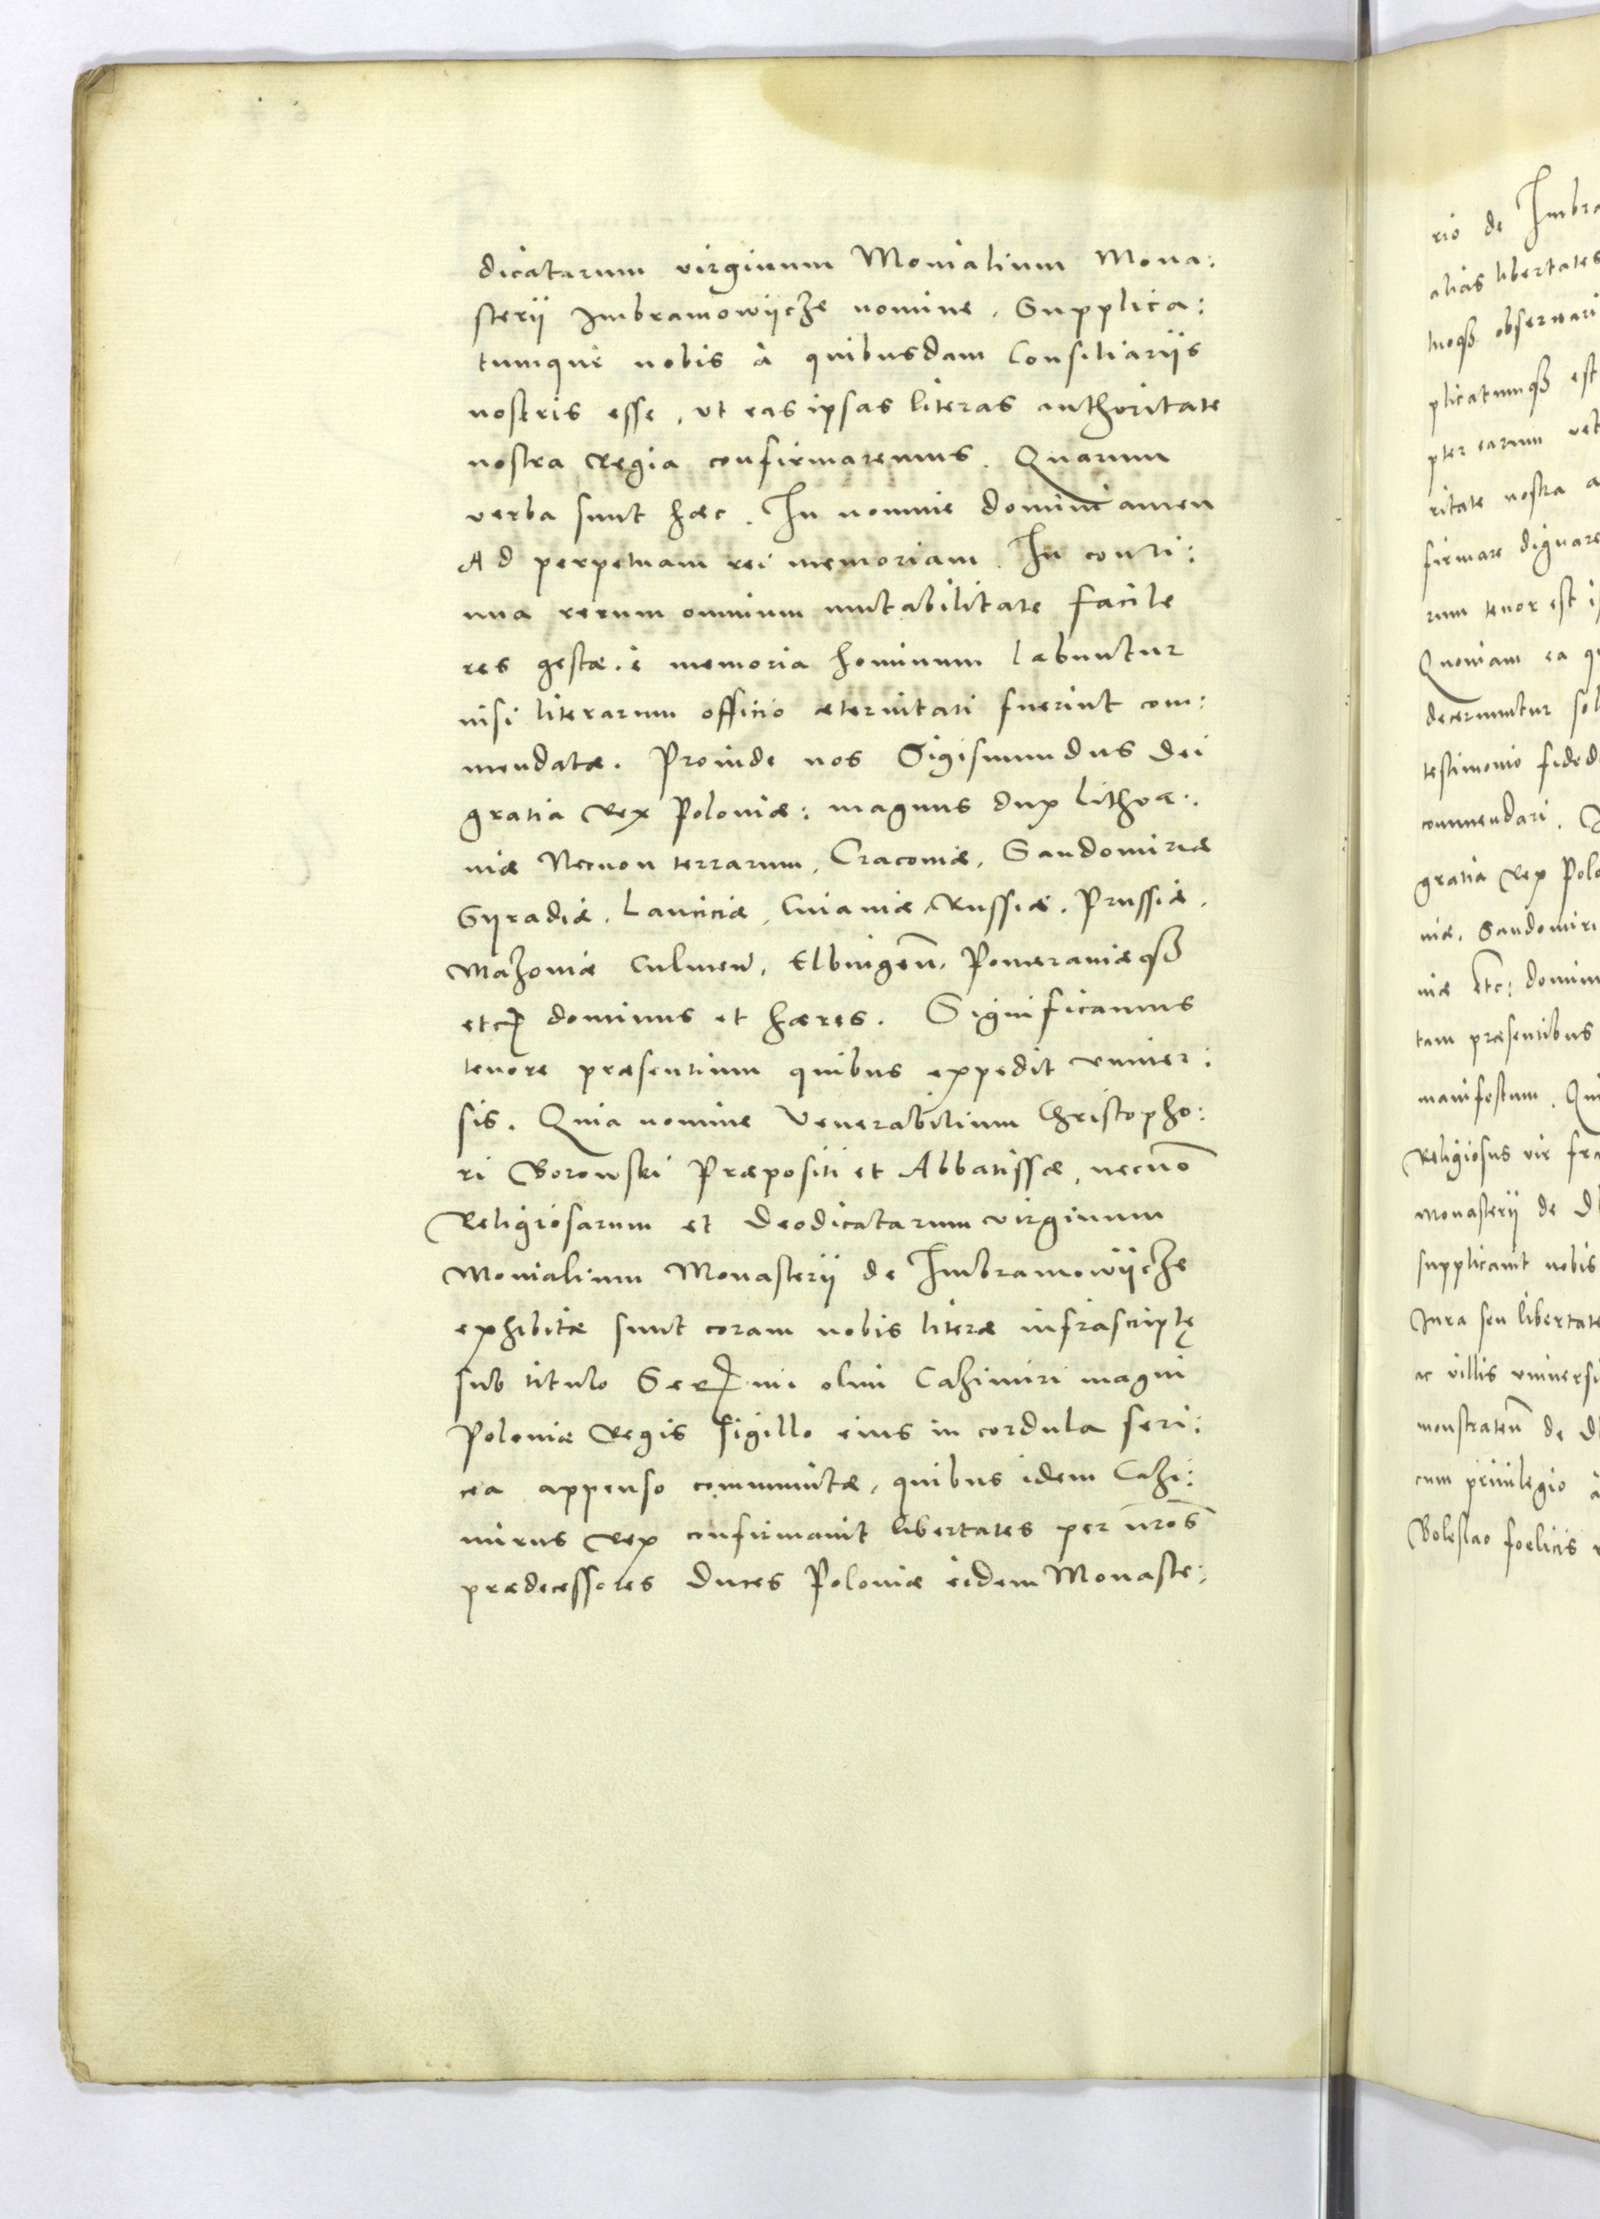 dicatarum virginum Monialium Mona:
sterij Imbramowijcze nomine, Supplica:
tumque nobis à quibusdam Consiliarijs
nostris esse, ut eas ipsas literas authoritate
nostra Regia confirmaremus. Quarum
verba sunt hæc. In nomine domini amen
Ad perpetuam rei memoriam. In conti:
nua rerum omnium mutabilitate facile
res gestæ è memoria hominum labuntur
nisi literarum officio æternitati fuerint com:
mendatæ. Proinde nos Sigismundus dei
gratia Rex Poloniæ: magnus dux Lithva:
niæ Necnon terrarum, Cracoviæ, Sandomiriæ
Syradiæ, Lanciciæ, Cuiaviæ, Russiæ, Prussiæ,
Mazoviæ Culmen̄, Elbingen̄, Pomeraniæqȝ
etc̄ dominus et hæres. Significamus
tenore præsentium quibus expedit univer:
sis. Quia nomine Venerabilium Christopho:
ri Borowski Præpositi et Abbatissæ, necno̅
Religiosarum et Deodicatarum virginum
Monialium Monasterij de Imbramowijcze
exhibitæ sunt coram nobis literæ infrascriptę
sub titulo Ser̄mi olim Cazimiri magni
Poloniæ Regis sigillo eius in cordula seri:
cea appenso communitæ, quibus idem Cazi:
mirus Rex confirmavit libertates per nr̄os
prædecessores Duces Poloniæ eidem Monaste:
rio de Imbra
alias libertates
moqȝ observari
plicatumqȝ est
pter earum vet
ritate nostra a
firmare dignare
rum tenor est i
Quoniam ea q
decernuntur sol
testimonio fided
commendari.
gratia Rex Polo
niæ, Sandomiri
niæ Etc: domin
tam præsentibus
manifestum. Qui
Religiosus vir fra
Monasterij de D
supplicavit nobis
Jura seu libertate
ac villis universi
monstraten̄ de D
cum privilegio à
Boleslao foelicis